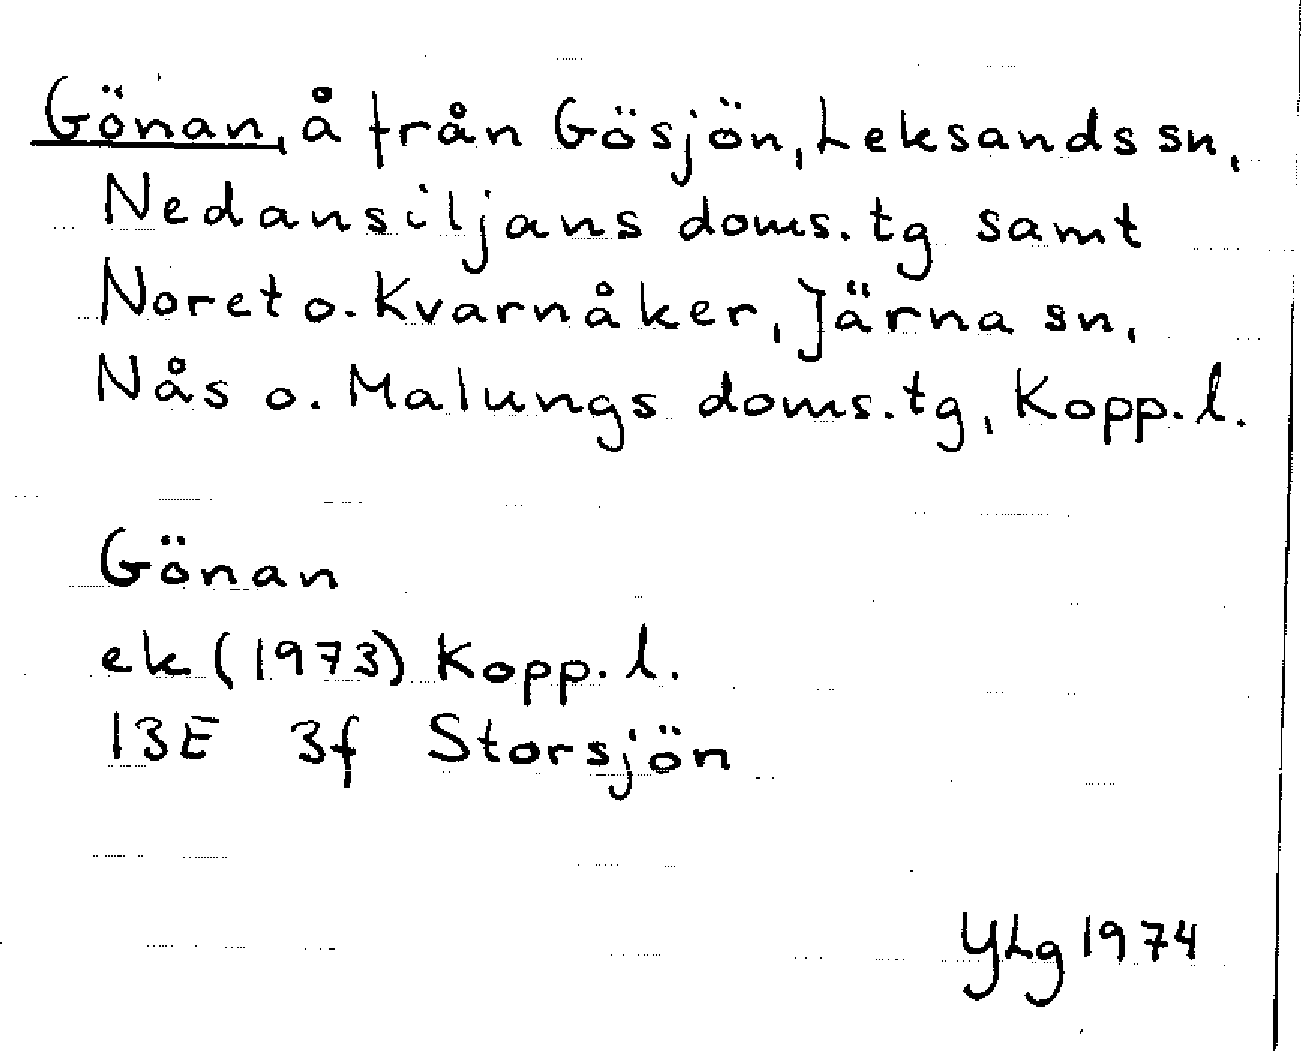 Gönan, å från Gösjön, Leksands sn,
Nedansiljans doms.tg samt
Noret o. Kvarnåker, Järna sn,
Nås o. Malungs doms.tg, Kopp. l.
Gönan
ek (1973) Kopp. l.
13E 3f Storsjön
YLg 1974